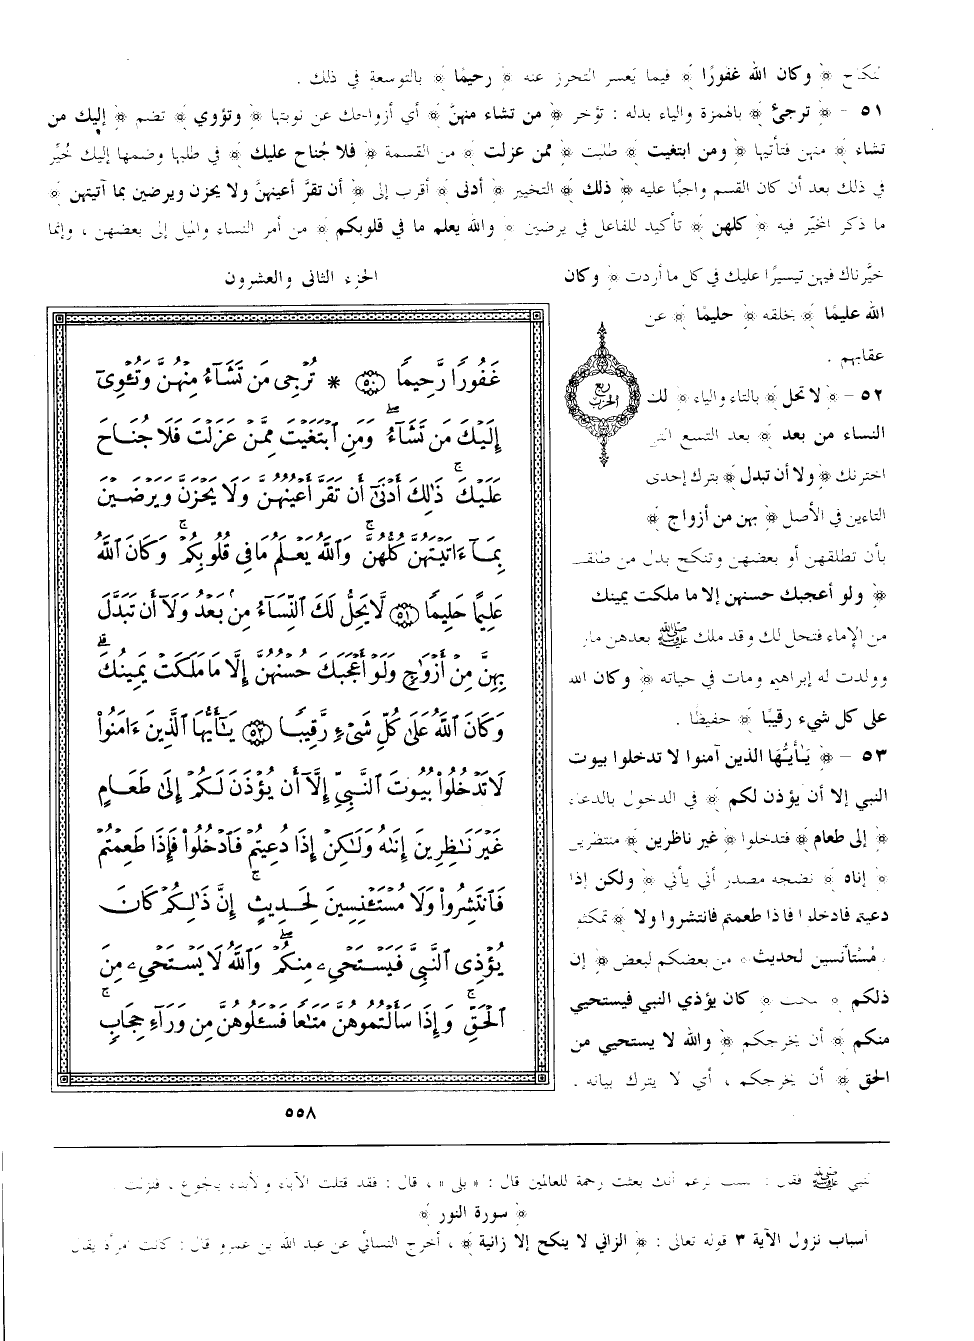 للنكاح ﴿ وكان الله غفورًا ﴾ فيما يَعسر التحرز عنه ﴿ رحيمًا ﴾ بالتوسعة في ذلك .
٥١ - ﴿ ترجئ ﴾ بالهمزة والياء بدله : تؤخر ﴿ من تشاء منهنَّ ﴾ أي أزواجك عن نوبتها ﴿ وتؤوي ﴾ تضم ﴿ إليك من
تشاء ﴾ منهن فتأتيها ﴿ ومن ابتغيت ﴾ طلبت ﴿ ممن عزلت ﴾ من القسمة ﴿ فلا جُناح عليك ﴾ في طلبها وضمها إليك خُيِّر
في ذلك بعد أن كان القسم واجبًا عليه ﴿ ذلك ﴾ التخيير ﴿ أدنى ﴾ أقرب إلى ﴿ أن تقرَّ أعينهنَّ ولا يحزن ويرضين بما آتيتهن ﴾
ما ذكر المخيّر فيه ﴿ كلهن ﴾ تأكيد للفاعل في يرضين ﴿ والله يعلم ما في قلوبكم ﴾ من أمر النساء والميل إلى بعضهن ، وإنما
خيَّرناك فيهن تيسيرًا عليك في كل ما أردت ﴿ وكان
الله عليمًا ﴾ بخلقه ﴿ حليمًا ﴾ عن
عقابهم .
٥٢ - ﴿ لا تحل ﴾ بالتاء والياء ﴿ لك
النساء من بعد ﴾ بعد التسع التي
اخترنك ﴿ ولا أن تبدل ﴾ بترك إحدى
التاءين في الأصل ﴿ بهن من أزواج ﴾
بأن تطلقهن أو بعضهن وتنكح بدل من طلقت
﴿ ولو أعجبك حسنهن إلا ما ملكت يمينك
من الإماء فتحل لك وقد ملك ﷺ بعدهن مارية
وولدت له إبراهيم ومات في حياته ﴿ وكان الله
على كل شيء رقيبًا ﴾ حفيظًا .
٥٣ - ﴿ يأيها الذين آمنوا لا تدخلوا بيوت
النبي إلا أن يؤذن لكم ﴾ في الدخول بالدعاء
﴿ إلى طعام ﴾ فتدخلوا ﴿ غير ناظرين ﴾ منتظرين
﴿ إناه ﴾ نضجه مصدر أنى يأني ﴿ ولكن إذا
دعيتم فادخلوا فإذا طعمتم فانتشروا ولا ﴾ تمكثوا
﴿ مُستأنسين لحديث ﴾ من بعضكم لبعض ﴿ إن
ذلكم ﴾ المكث ﴿ كان يؤذي النبي فيستحيي
منكم ﴾ أن يخرجكم ﴿ والله لا يستحيي من
الحق ﴾ أن يخرجكم ، أي لا يترك بيانه .
الجزء الثاني والعشرون
غَفُورًا رَّحِيمًا ٥٠ * تُرْجِي مَن تَشَآءُ مِنْهُنَّ وَتُـْٔوِيٓ
إِلَيْكَ مَن تَشَآءُ ۖ وَمَنِ ٱبْتَغَيْتَ مِمَّنْ عَزَلْتَ فَلَا جُنَاحَ
عَلَيْكَ ۚ ذَٰلِكَ أَدْنَىٰٓ أَن تَقَرَّ أَعْيُنُهُنَّ وَلَا يَحْزَنَّ وَيَرْضَيْنَ
بِمَآ ءَاتَيْتَهُنَّ كُلُّهُنَّ ۚ وَٱللَّهُ يَعْلَمُ مَا فِي قُلُوبِكُمْ ۚ وَكَانَ ٱللَّهُ
عَلِيمًا حَلِيمًا ٥١ لَّا يَحِلُّ لَكَ ٱلنِّسَآءُ مِنۢ بَعْدُ وَلَآ أَن تَبَدَّلَ
بِهِنَّ مِنْ أَزْوَٰجٍ وَلَوْ أَعْجَبَكَ حُسْنُهُنَّ إِلَّا مَا مَلَكَتْ يَمِينُكَ ۗ
وَكَانَ ٱللَّهُ عَلَىٰ كُلِّ شَيْءٍ رَّقِيبًا ٥٢ يَـٰٓأَيُّهَا ٱلَّذِينَ ءَامَنُوا۟
لَا تَدْخُلُوا۟ بُيُوتَ ٱلنَّبِيِّ إِلَّآ أَن يُؤْذَنَ لَكُمْ إِلَىٰ طَعَامٍ
غَيْرَ نَـٰظِرِينَ إِنَىٰهُ وَلَـٰكِنْ إِذَا دُعِيتُمْ فَٱدْخُلُوا۟ فَإِذَا طَعِمْتُمْ
فَٱنتَشِرُوا۟ وَلَا مُسْتَـْٔنِسِينَ لِحَدِيثٍ ۚ إِنَّ ذَٰلِكُمْ كَانَ
يُؤْذِي ٱلنَّبِيَّ فَيَسْتَحْيِۦ مِنكُمْ ۖ وَٱللَّهُ لَا يَسْتَحْيِۦ مِنَ
ٱلْحَقِّ ۚ وَإِذَا سَأَلْتُمُوهُنَّ مَتَـٰعًا فَسْـَٔلُوهُنَّ مِن وَرَآءِ حِجَابٍ ۚ
ربع
الحزب
٥٥٨
النبي ﷺ فقال : ألست تزعم أنك بعثت رحمة للعالمين قال : « بلى » ، قال : فقد قتلت الآباء والأبناء بالجوع ، فنزلت .
﴿ سورة النور ﴾
أسباب نزول الآية ٣ قوله تعالى : ﴿ الزاني لا ينكح إلا زانية ﴾ ، أخرج النسائي عن عبد الله بن عمرو قال : كانت امرأة يقال